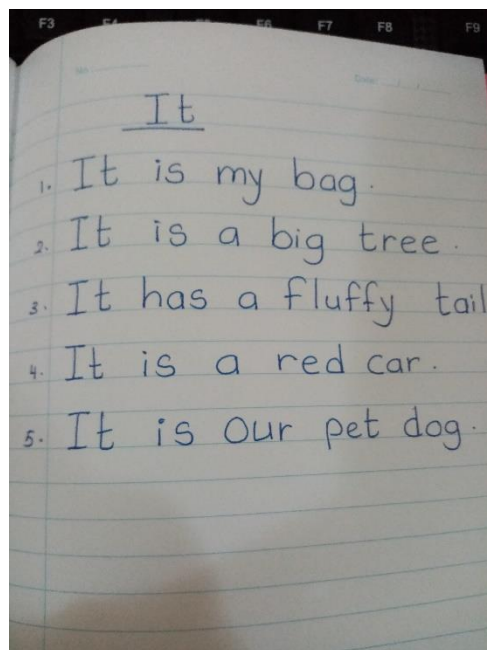 F3 F4 F5 F6 F7 F8 F9
No : Date:
It
1. It is my bag.
2. It is a big tree.
3. It has a fluffy tail
4. It is a red car.
5. It is our pet dog.